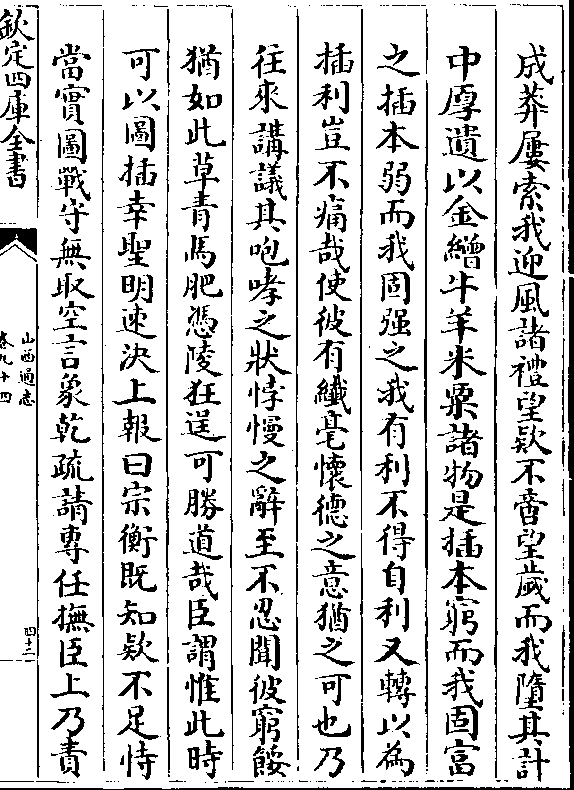 成莽屢索我迎風諸禮望欵不啻望歲而我墮其計
中厚遺以金繒牛羊米粟諸物是插本窮而我固富
之插本弱而我固强之我有利不得自利又轉以為
插利豈不痛哉使彼有纖毫懷德之意猶之可也乃
往來講議其咆哮之狀悖慢之辭至不忍聞彼窮餒
猶如此草青馬肥憑陵狂逞可勝道哉臣謂惟此時
可以圖插幸聖明速決上報曰宗衡既知欵不足恃
當實圖戰守無取空言象乾疏請專任撫臣上乃責
欽定四庫全書
山西通志
卷九十四
四十二